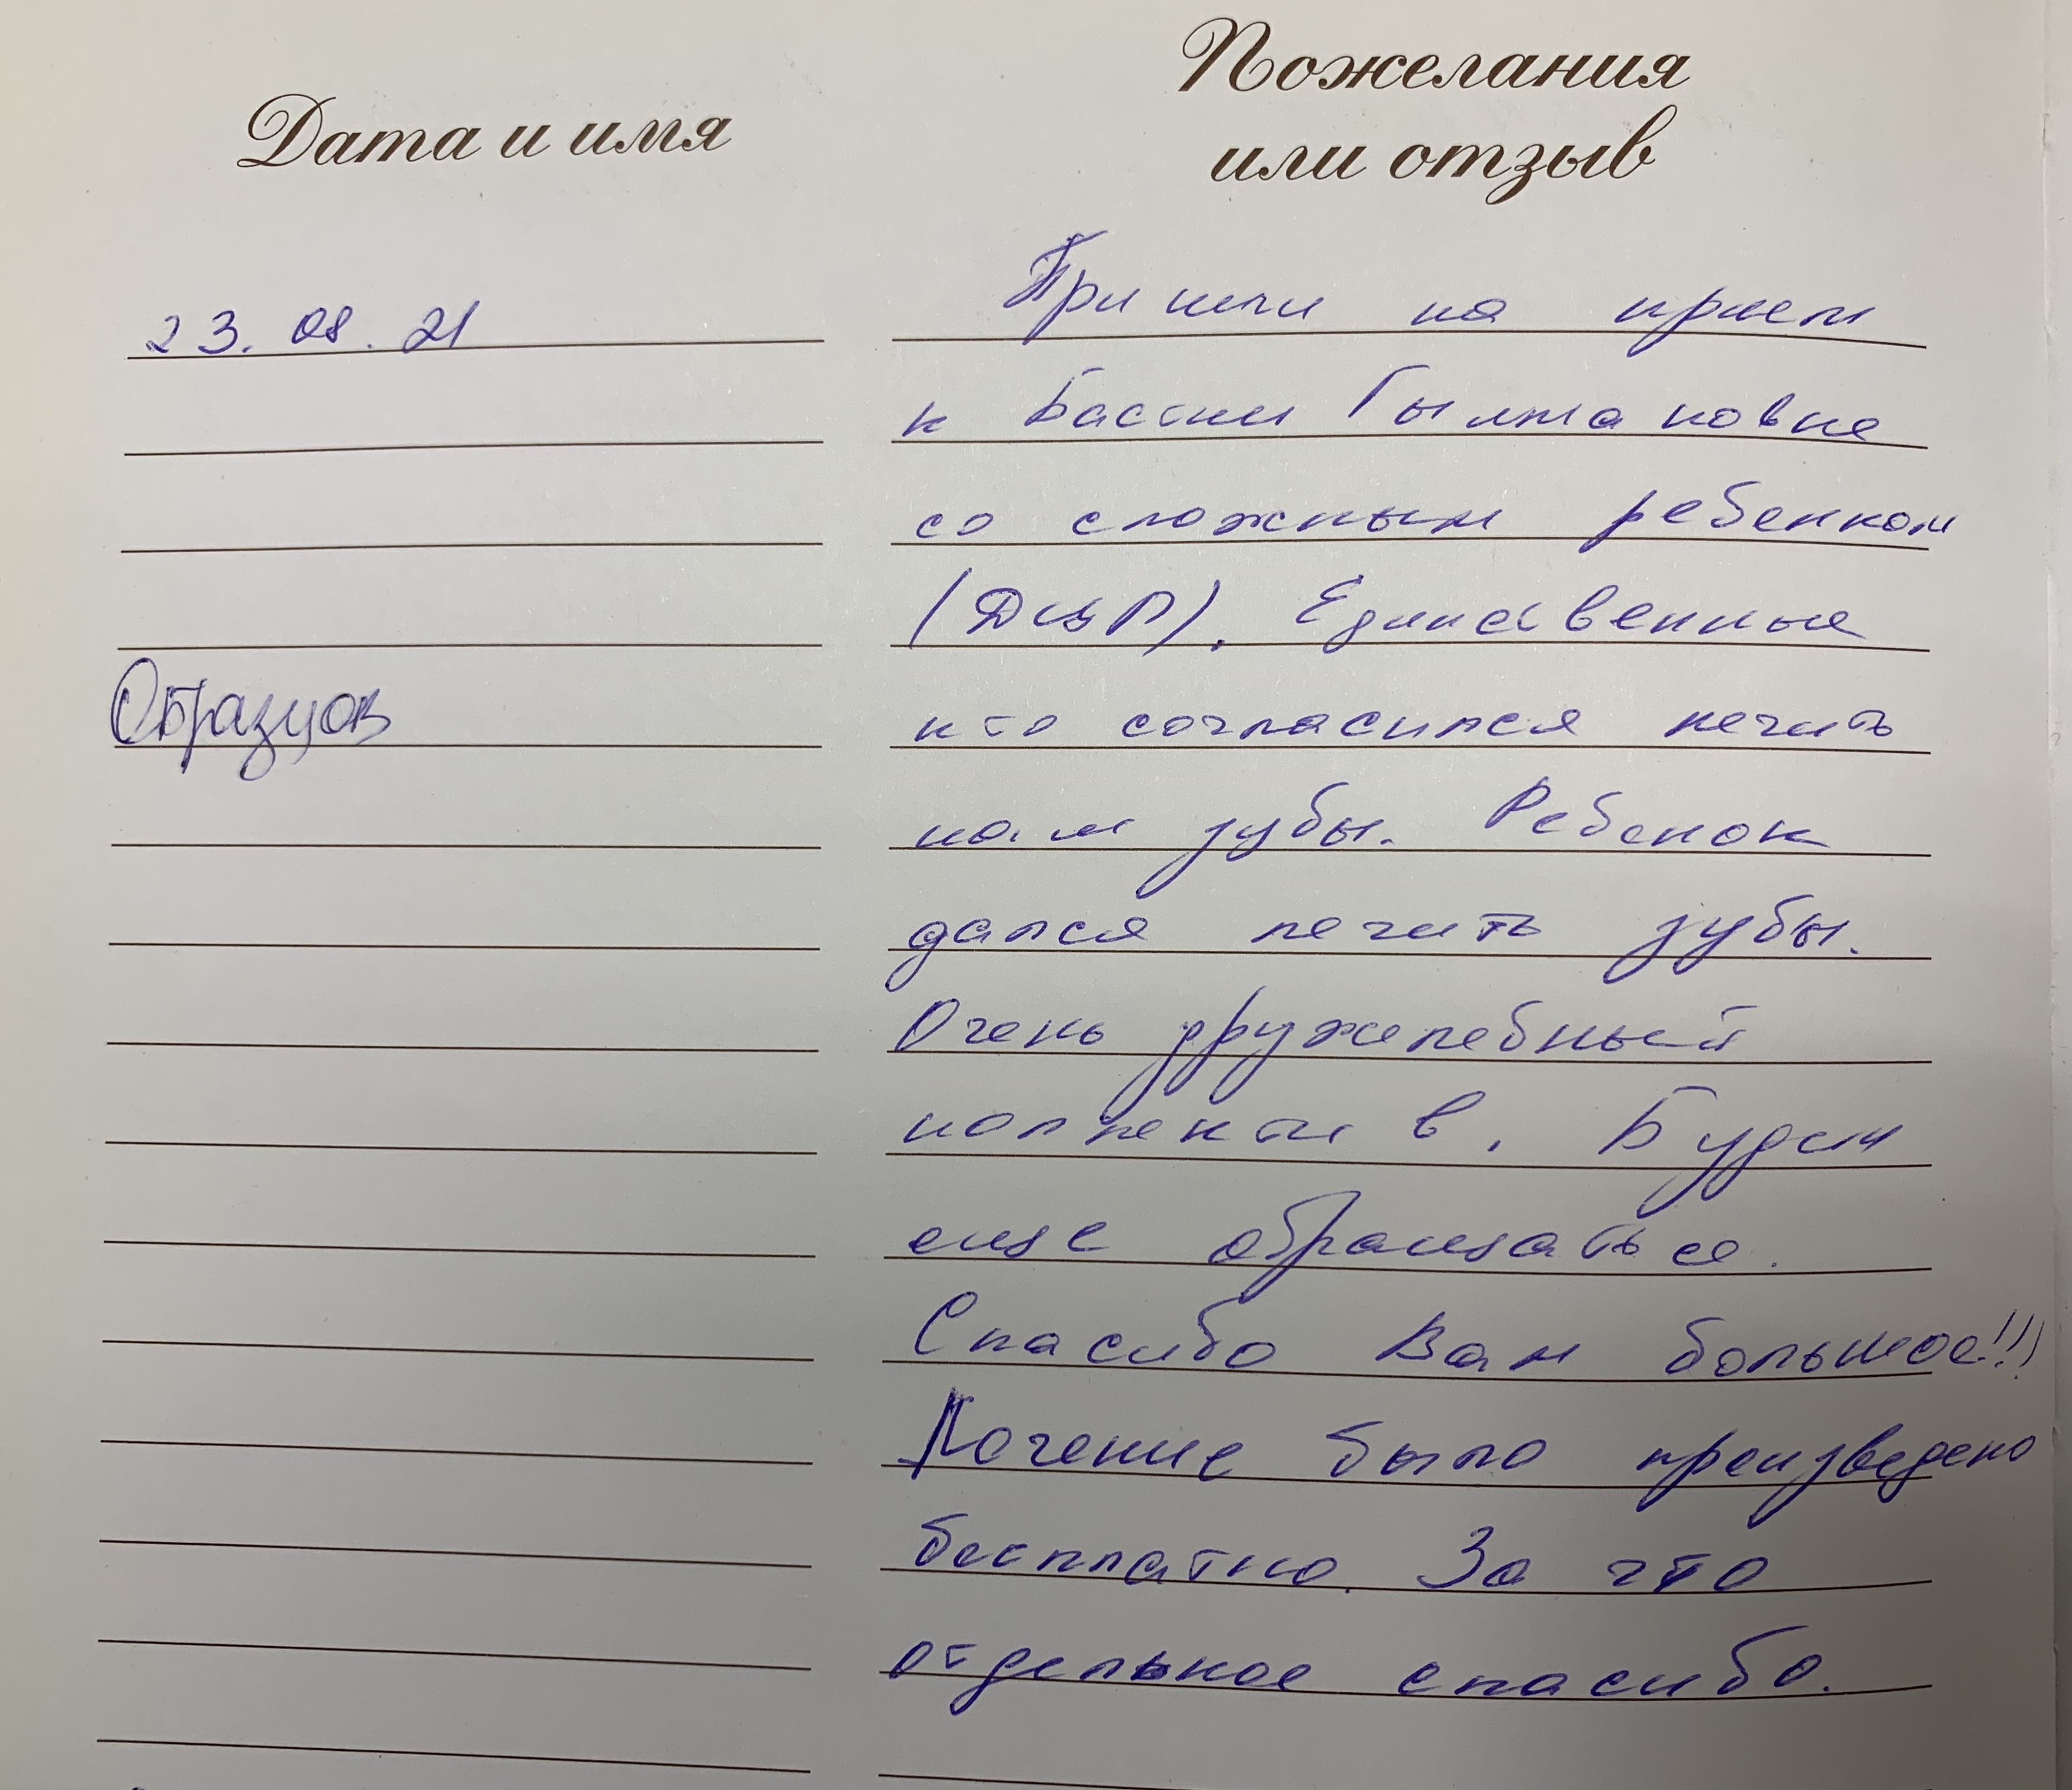 Дата и имя
Пожелания
или отзыв
23.08.21
Пришли на прием
к Бассии Гылмановне
со сложным ребенком
(ДЦП). Единственные
Образцов
кто согласился лечить
нам зубы. Ребенок
дался лечить зубы.
Очень дружелебный
коллектив. Будем
еще обращаться.
Спасибо Вам большое!!!
Лечение было преизведено
бесплатно. За что
отдельное спасибо.